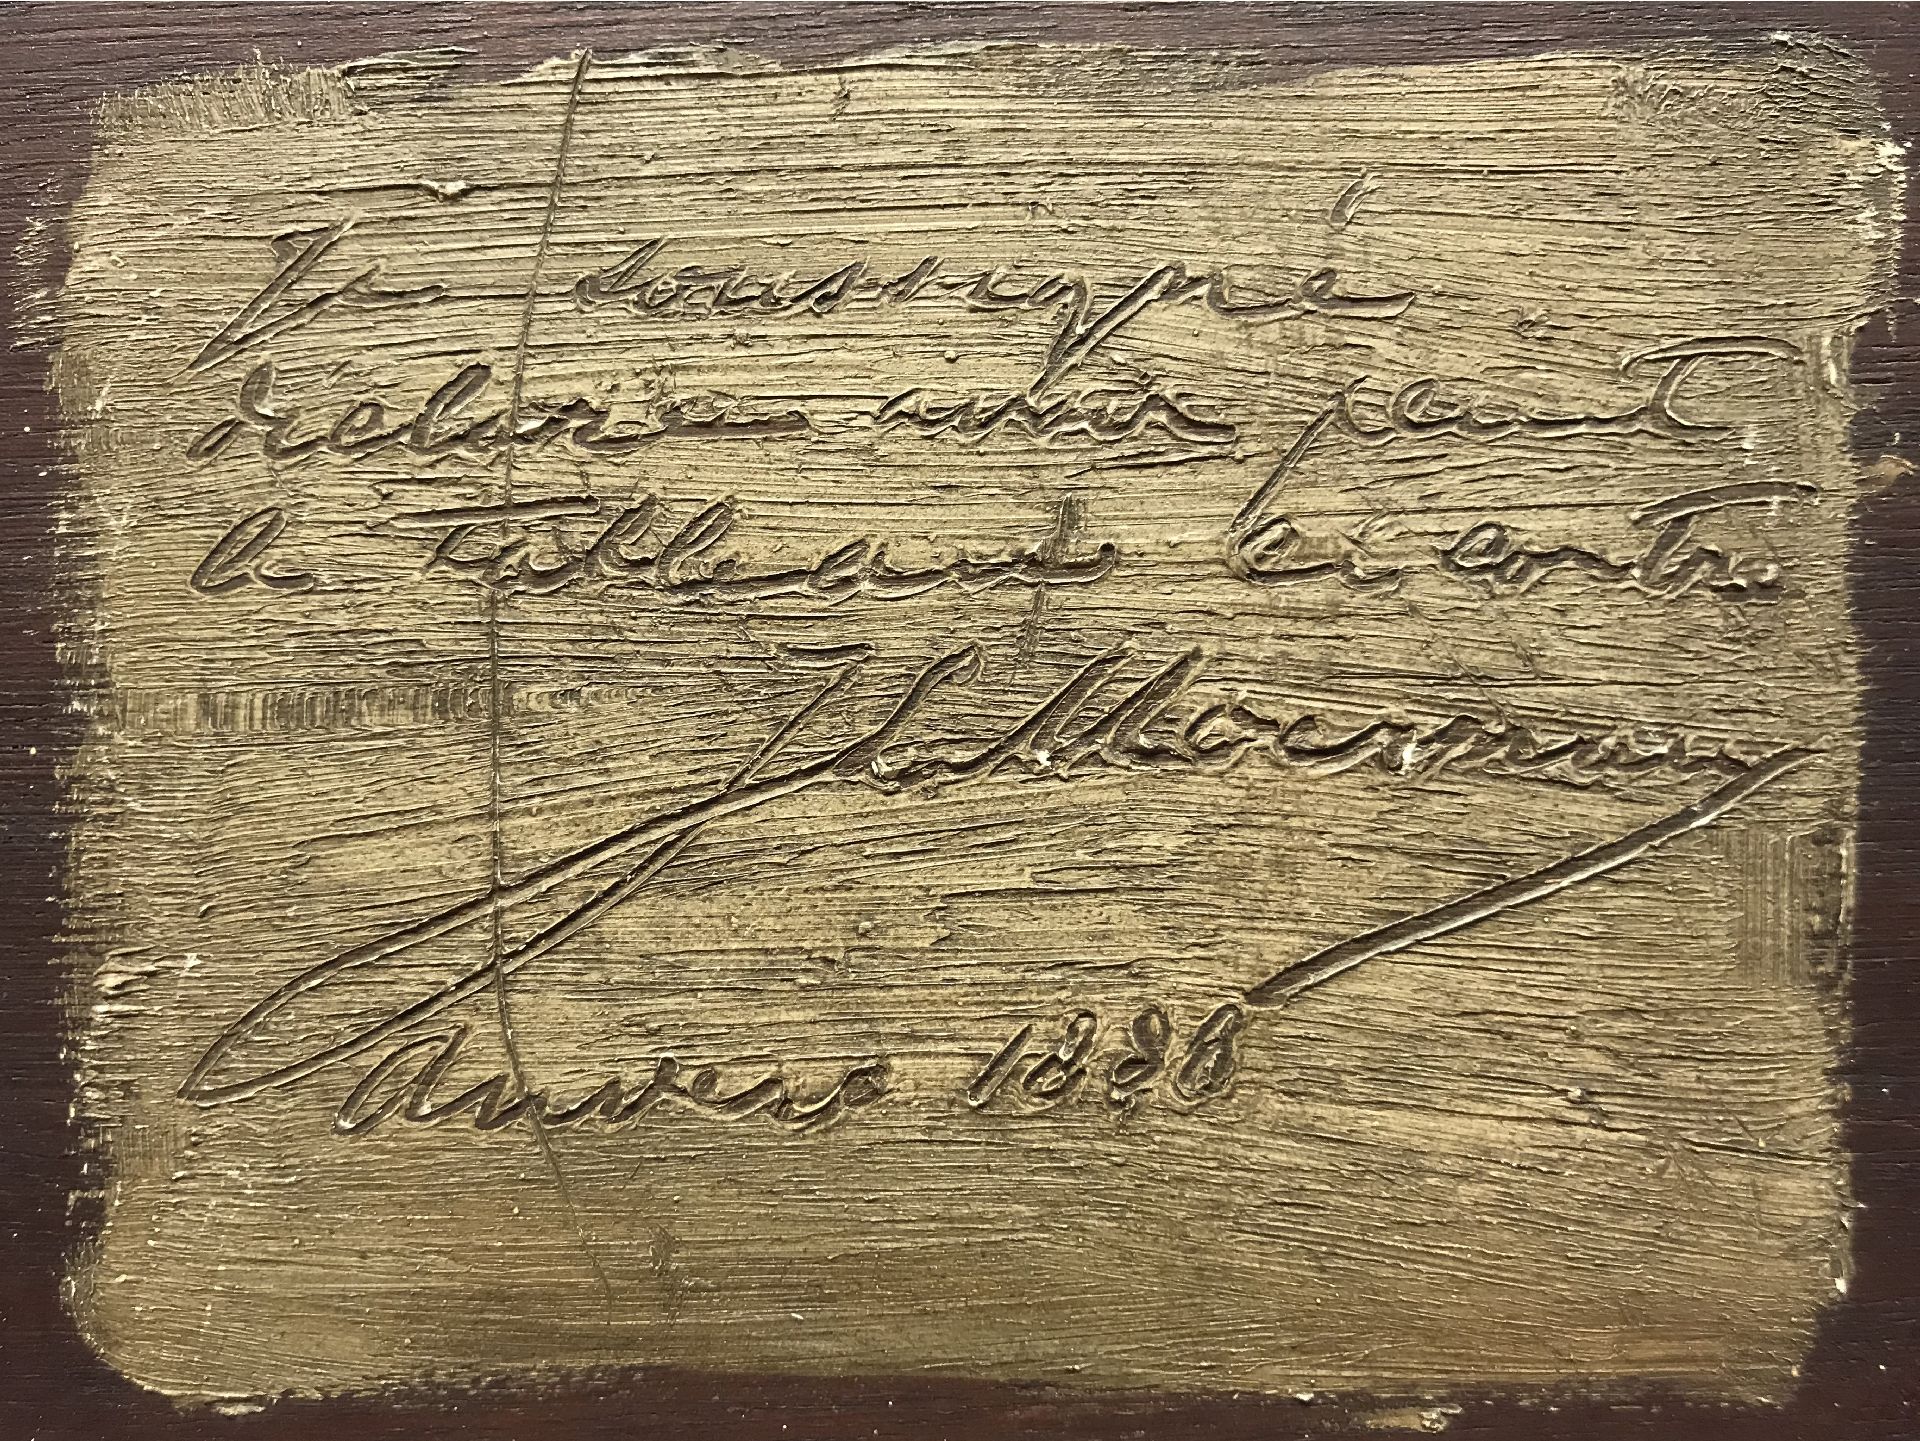 Je soussigné
déclare avoir peint
le tableau ci contre
Anvers 1886